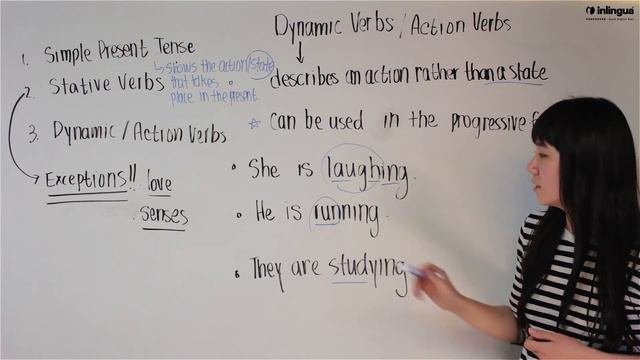 inlingua
Dynamic Verbs / Action Verbs
1. Simple Present Tense
↳ shows the action/state
that takes
place in the present
2. Stative Verbs
describes an action rather than a state
3. Dynamic / Action Verbs
☆ Can be used in the progressive f
Exceptions!! . love
. senses
• She is laughing.
• He is running.
• They are studying